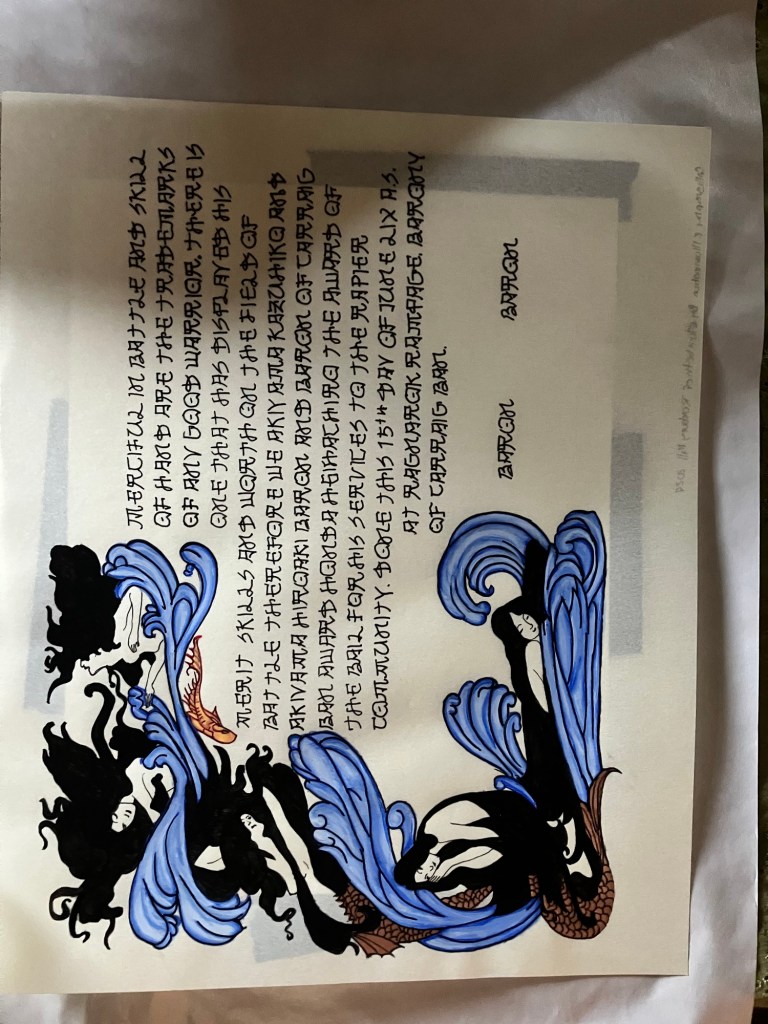 MERCIFUL IN BATTLE AND SKILL
OF HAND ARE THE TRADEMARKS
OF ANY GOOD WARRIOR. THERE IS
ONE THAT HAS DISPLAYED HIS
MERIT SKILLS AND WORTH ON THE FIELD OF
BATTLE THEREFORE WE AKIYAMA KAZUHIKO AND
AKIYAMA HIROAKI BARON AND BARON OF CARRAIG
BAN AWARD HONDA HEIHACHIRO THE AWARD OF
THE BAIL FOR HIS SERVICES TO THE RAPIER
COMMUNITY. DONE THIS 15TH DAY OF JUNE LIX A.S.
AT RAGNAROK RAMPAGE, BARONY
OF CARRAIG BAN.
BARON BARON